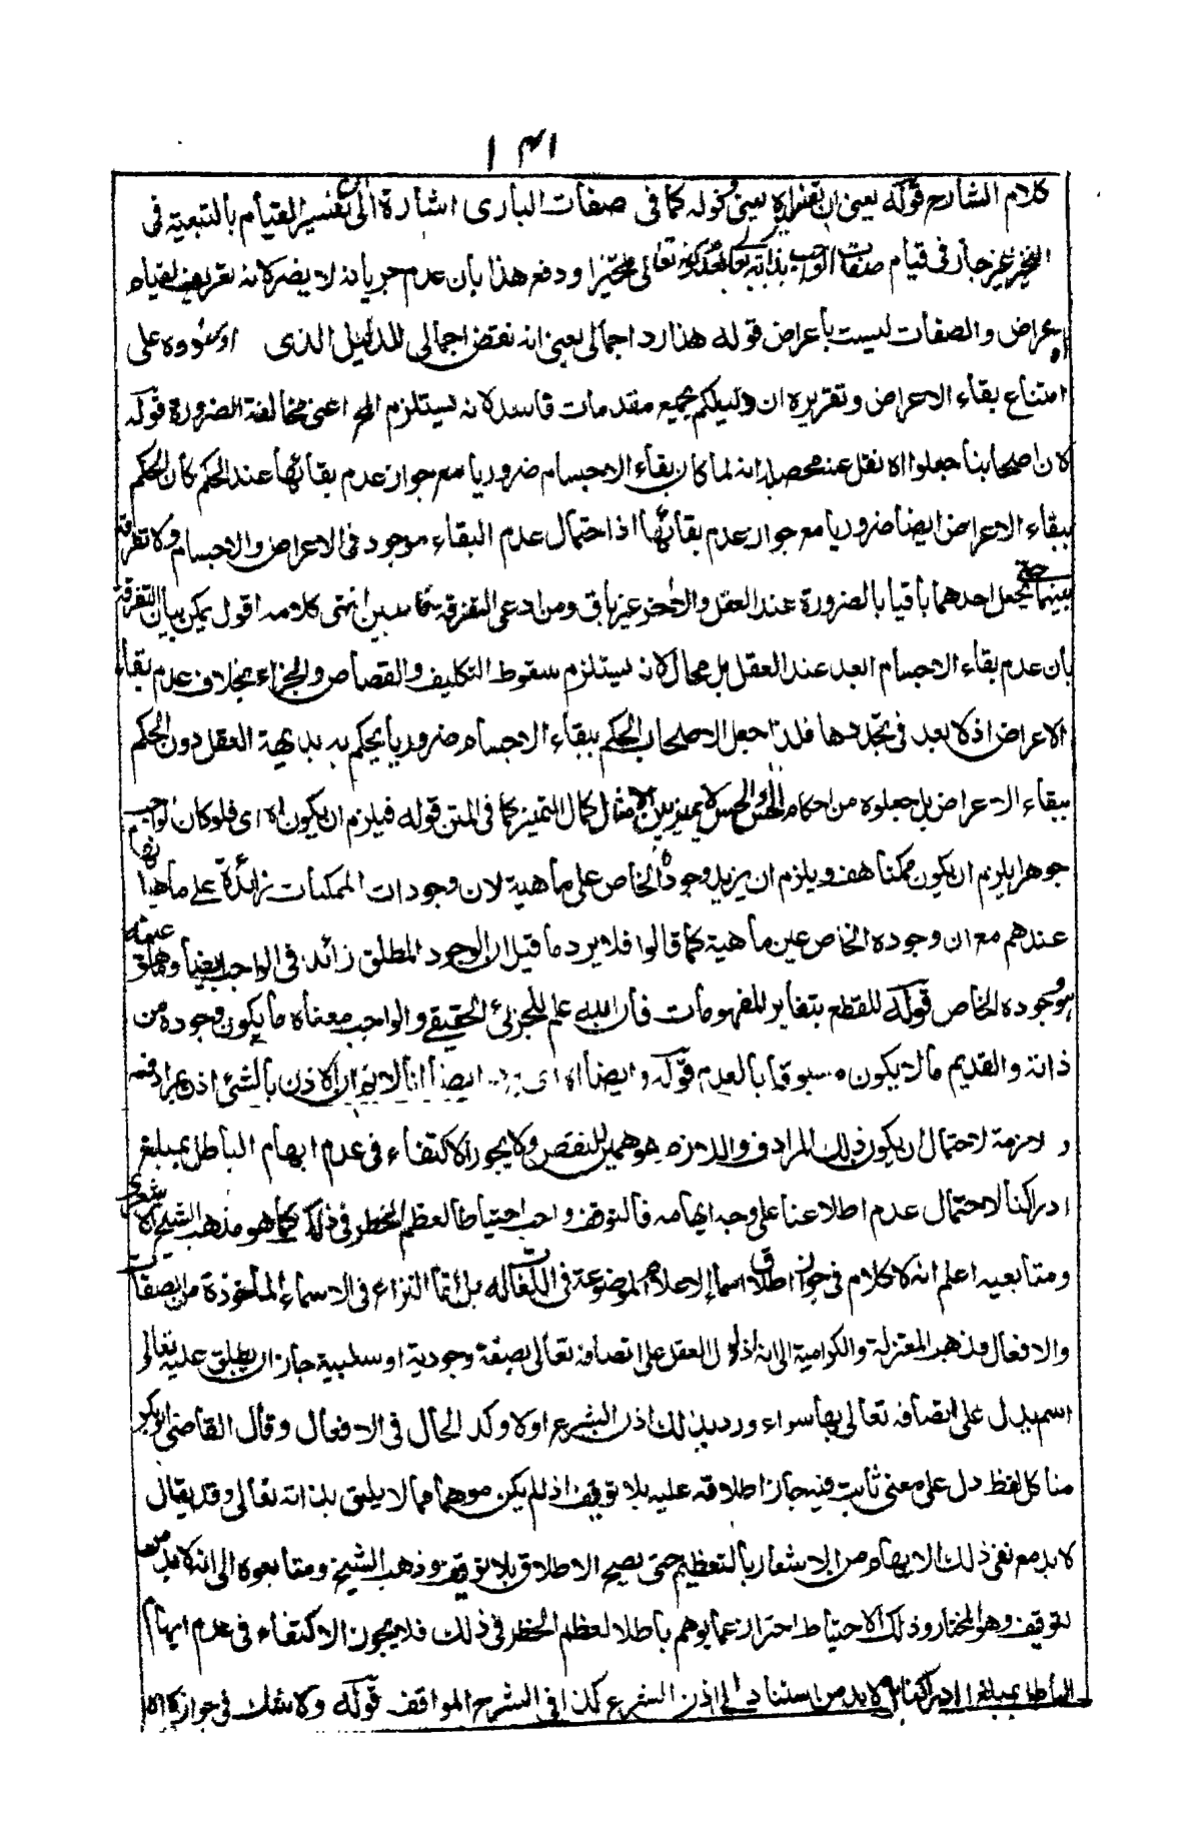 ١٣١
كلام الشارح قوله يعنى ان تفسيره يعنى قوله كما فى صفات البارى اشارة الى ان تفسير القيام بالتبعية فى
التحيز غير جار فى قيام صفات الواجب بذاته تعالى لعدم كونه تعالى متحيزا ودفع هذا بان عدم جريانه لا يضر لانه تعريف لقيام
الاعراض والصفات ليست باعراض قوله هذا رد اجمالى يعنى انه نقض اجمالى للدليل الذى اوردوه على
امتناع بقاء الاعراض وتقريره ان دليلكم بجميع مقدمات فاسد لانه يستلزم المح اعنى مخالفة الضرورة قوله
لان اصحابنا جعلوا اه نقل عنه محصله انه لما كان بقاء الاجسام ضروريا مع جواز عدم بقائها عند الحكم كان الحكم
ببقاء الاعراض ايضا ضروريا مع جواز عدم بقائها اذ احتمال عدم البقاء موجود فى الاعراض والاجسام ولا تفرقة
بينهما حتى يجعل احدهما باقيا بالضرورة عند العقل والاخر غير باق ومن ادعى التفرقة فعليه انتهى كلامه اقول يمكن بيان التفرقة
بان عدم بقاء الاجسام ابعد عند العقل بل محال لانه يستلزم سقوط التكليف والقصاص والجزاء بخلاف عدم بقاء
الاعراض اذ لا بعد فى تجددها فلذا جعل الاصحاب الحكم ببقاء الاجسام ضروريا يحكم به بداهة العقل دون الحكم
ببقاء الاعراض بل جعلوه من احكام الحس والحس لا يميز بين الامثال كمال التميز كما فى المتن قوله فيلزم ان يكون اه اى فلو كان الواجب
جوهرا يلزم ان يكون ممكنا هف ويلزم ان يزيد وجوده الخاص على ماهية لان وجودات الممكنات زائدة على ماهياتها
عندهم مع ان وجوده الخاص عين ماهية كما قالوا فلا يرد ما قيل ان الوجود المطلق زائد فى الواجب ايضا وما هو عينه
هو وجوده الخاص قوله للقطع بتغاير المفهومات فان الله علم للجزئى الحقيقى والواجب معناه ما يكون وجوده من
ذاته والقديم ما لا يكون مسبوقا بالعدم قوله وايضا اه اى ايضا انا لا نم ان الاذن بالشئ اذن بمرادفه
ولازمه لاحتمال ان يكون ذلك المرادف واللازم موهمين للنقص ولا يجوز الاكتفاء فى عدم ايهام الباطل بمبلغ
ادراكنا لاحتمال عدم اطلاعنا على وجه ايهامه فالتوقف واجب احتياطا لعظم الخطر فى ذلك كما هو مذهب الشيخ الاشعرى
ومتابعيه اعلم انه لا كلام فى جواز اطلاق اسماء الاعلام الموضوعة فى اللغات له بل انما النزاع فى الاسماء المأخوذة من الصفات
والافعال فذهب المعتزلة والكرامية الى انه اذا دل العقل على اتصافه تعالى بصفة وجودية او سلبية جاز ان يطلق عليه تعالى
اسم يدل على اتصافه تعالى بها سواء ورد بذلك اذن الشرع اولا وكذ الحال فى الافعال وقال القاضى ابوبكر
منا كل لفظ دل على معنى ثابت فيه جاز اطلاقه عليه بلا توقيف اذ لم يكن موهما لما لا يليق بذاته تعالى وقد يقال
لا بد مع نفى ذلك الايهام من الاشعار بالتعظيم حتى يصح الاطلاق بلا توقيف وذهب الشيخ ومتابعوه الى انه لا بد من
التوقيف وهو المختار وذلك الاحتياط احترازا عما يوهم باطلا لعظم الخطر فى ذلك فلا يجوز الاكتفاء فى عدم ايهام
الباطل بمبلغ ادراكنا بل لا بد من استناد الى اذن الشرع كذا فى الشرح المواقف قوله ولا شك فى جوازه اه